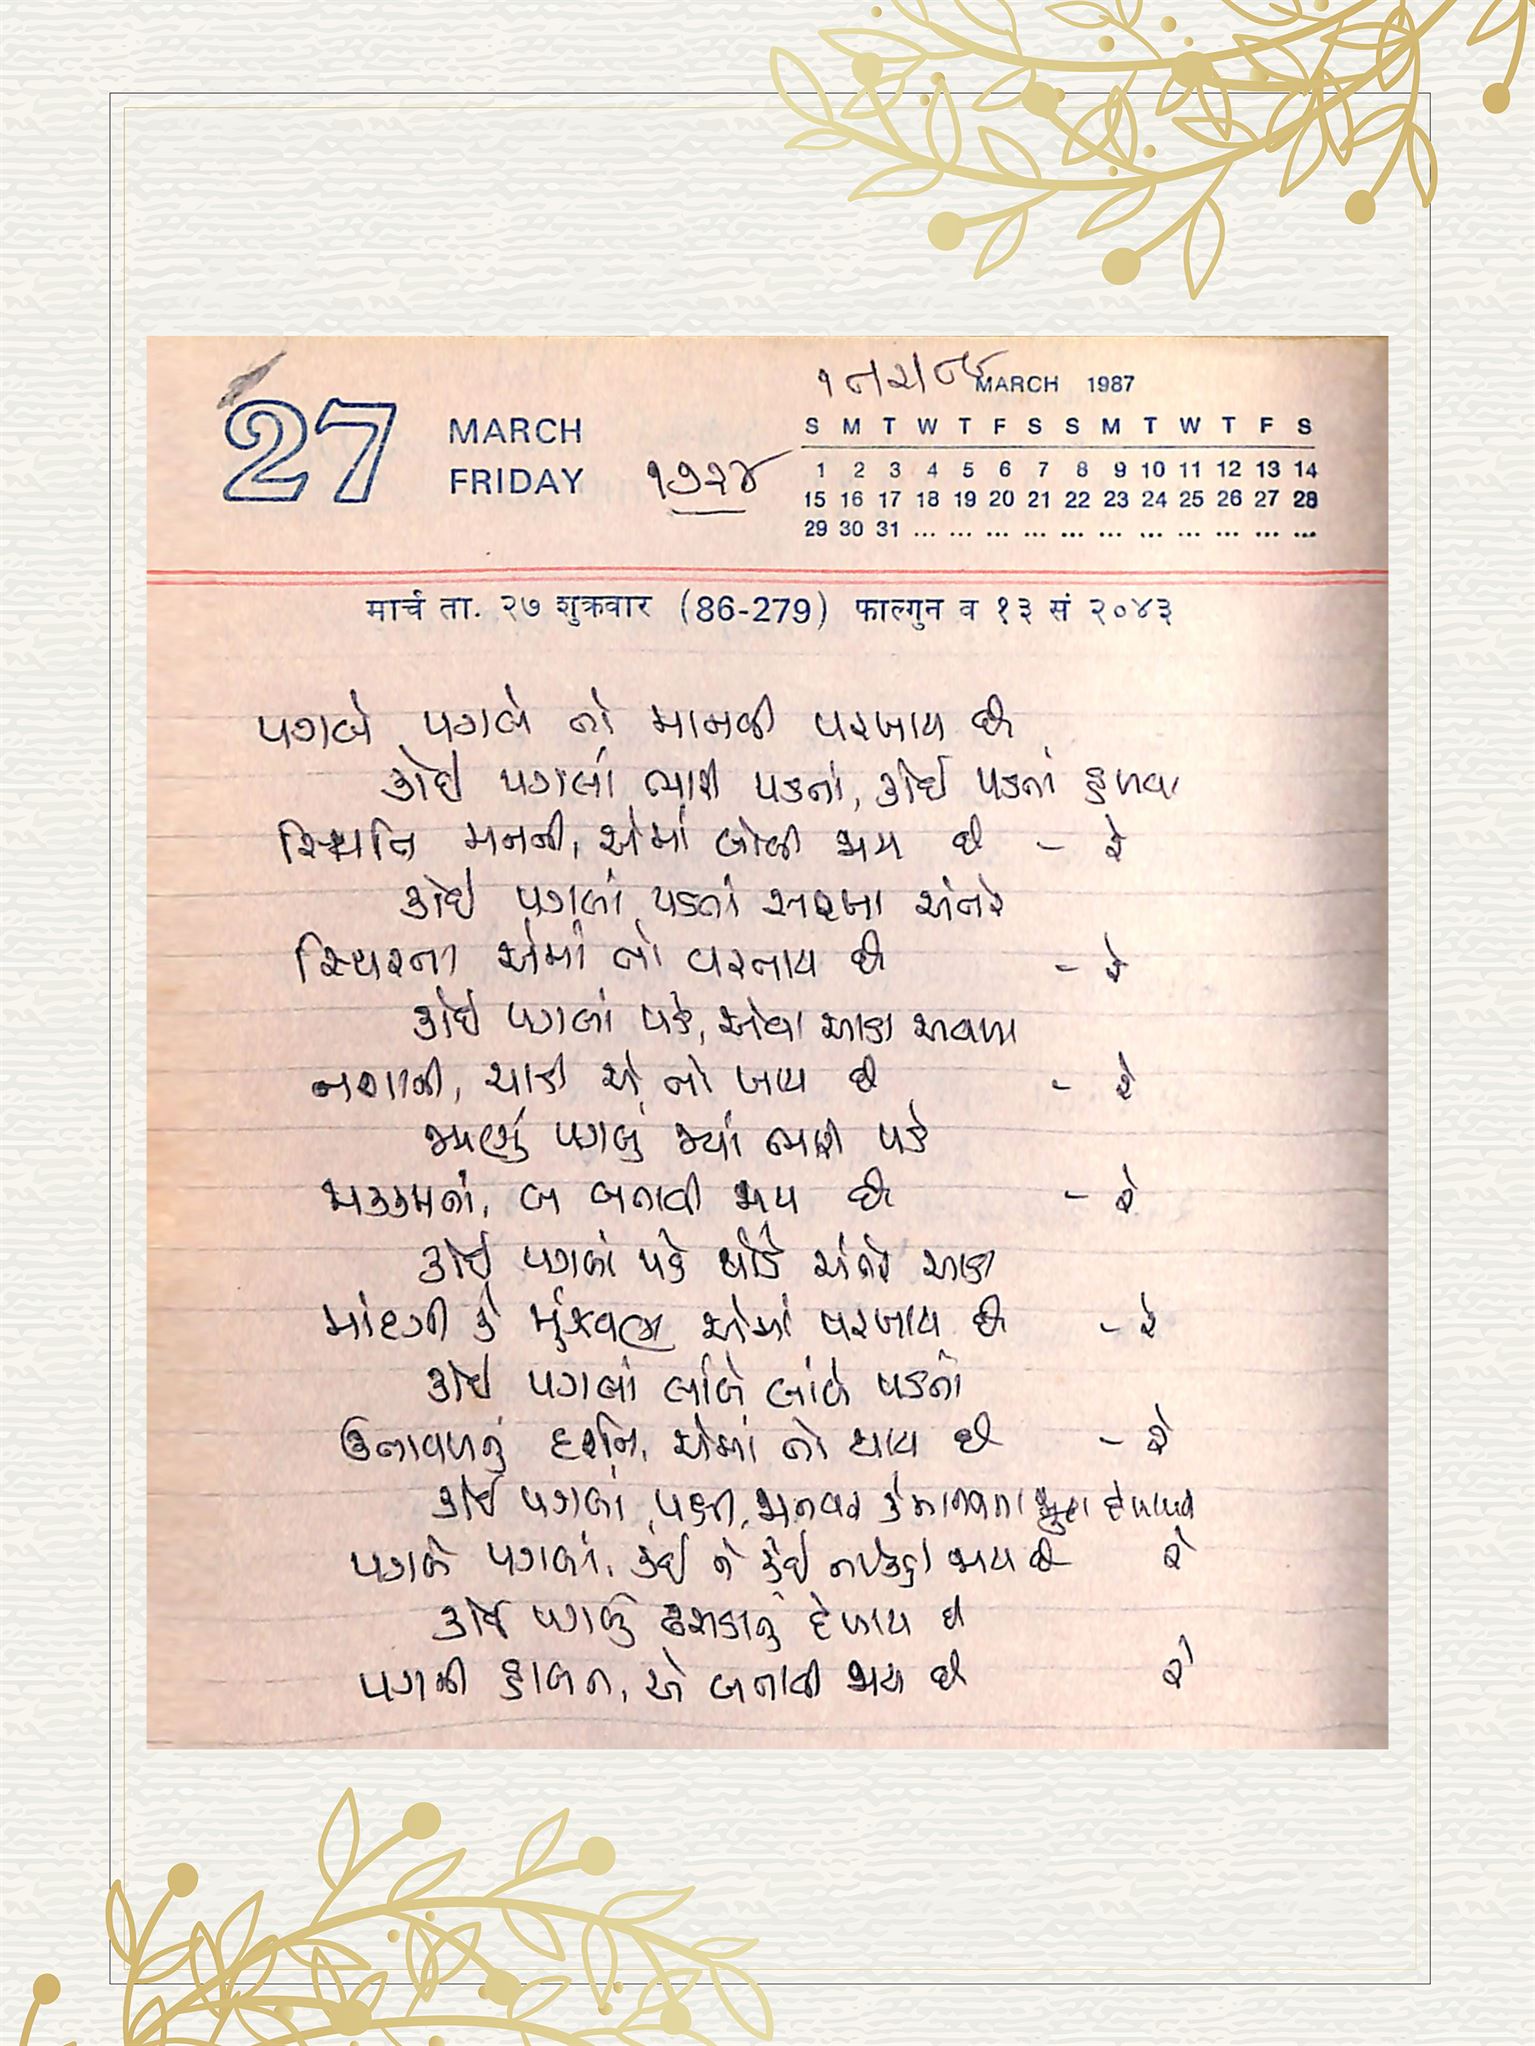 MARCH 1987
27 MARCH
FRIDAY
૧૭૨૪
S M T W T F S S M T W T F S
1 2 3 4 5 6 7 8 9 10 11 12 13 14
15 16 17 18 19 20 21 22 23 24 25 26 27 28
29 30 31 ... ... ... ... ... ... ... ... ... ... ...
मार्च ता. २७ शुक्रवार (86-279) फाल्गुन व १३ सं २०४३
પગલે પગલે તો માનવી પરખાય છે
કોઈ પગલાં ભારી પડતાં, કોઈ પડતાં હળવા
સ્થિતિ મનની, એમાં બોલી જાય છે - રે
કોઈ પગલાં પડતાં સરખા અંતરે
સ્થિરતા એમાં તો વરતાય છે - રે
કોઈ પગલાં પડે, એવા આડા અવળા
નશાની, ચાડી એ તો ખાય છે - રે
જાણ્યું પગલું જ્યાં ભારી પડે
મક્કમતા, બતાવી જાય છે - રે
કોઈ પગલાં પડે થોડે અંતરે આડા
માંદગી કે મુંઝવણ એમાં પરખાય છે - રે
કોઈ પગલાં લાંબે લાંબે પડતાં
ઉતાવળનું દર્શન, એમાં તો થાય છે - રે
કોઈ પગલાં, પક્ષી, જાનવર કે માનવના જુદા દેખાય
પગલે પગલાં, કંઈ ને કંઈ જાય છે રે
કોઈ પગલું ઢસડાતું દેખાય છે
પગની હાલત, એ બતાવી જાય છે રે